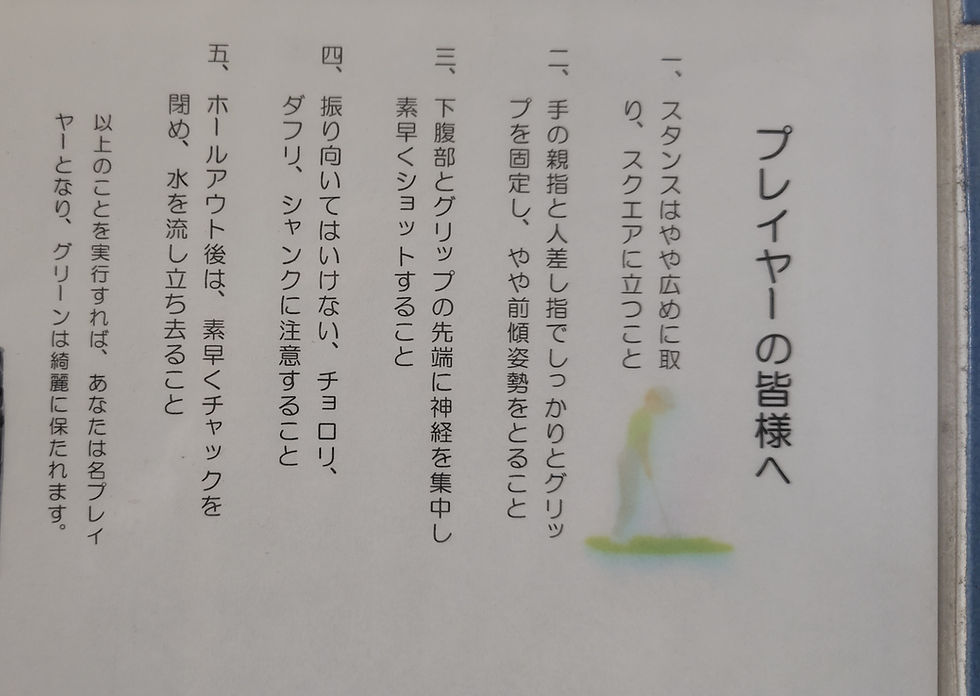 プレイヤーの皆様へ
一、スタンスはやや広めに取
り、スクエアに立つこと
二、手の親指と人差し指でしっかりとグリッ
プを固定し、やや前傾姿勢をとること
三、下腹部とグリップの先端に神経を集中し
素早くショットすること
四、振り向いてはいけない、チョロリ、
ダフリ、シャンクに注意すること
五、ホールアウト後は、素早くチャックを
閉め、水を流し立ち去ること
以上のことを実行すれば、あなたは名プレイ
ヤーとなり、グリーンは綺麗に保たれます。